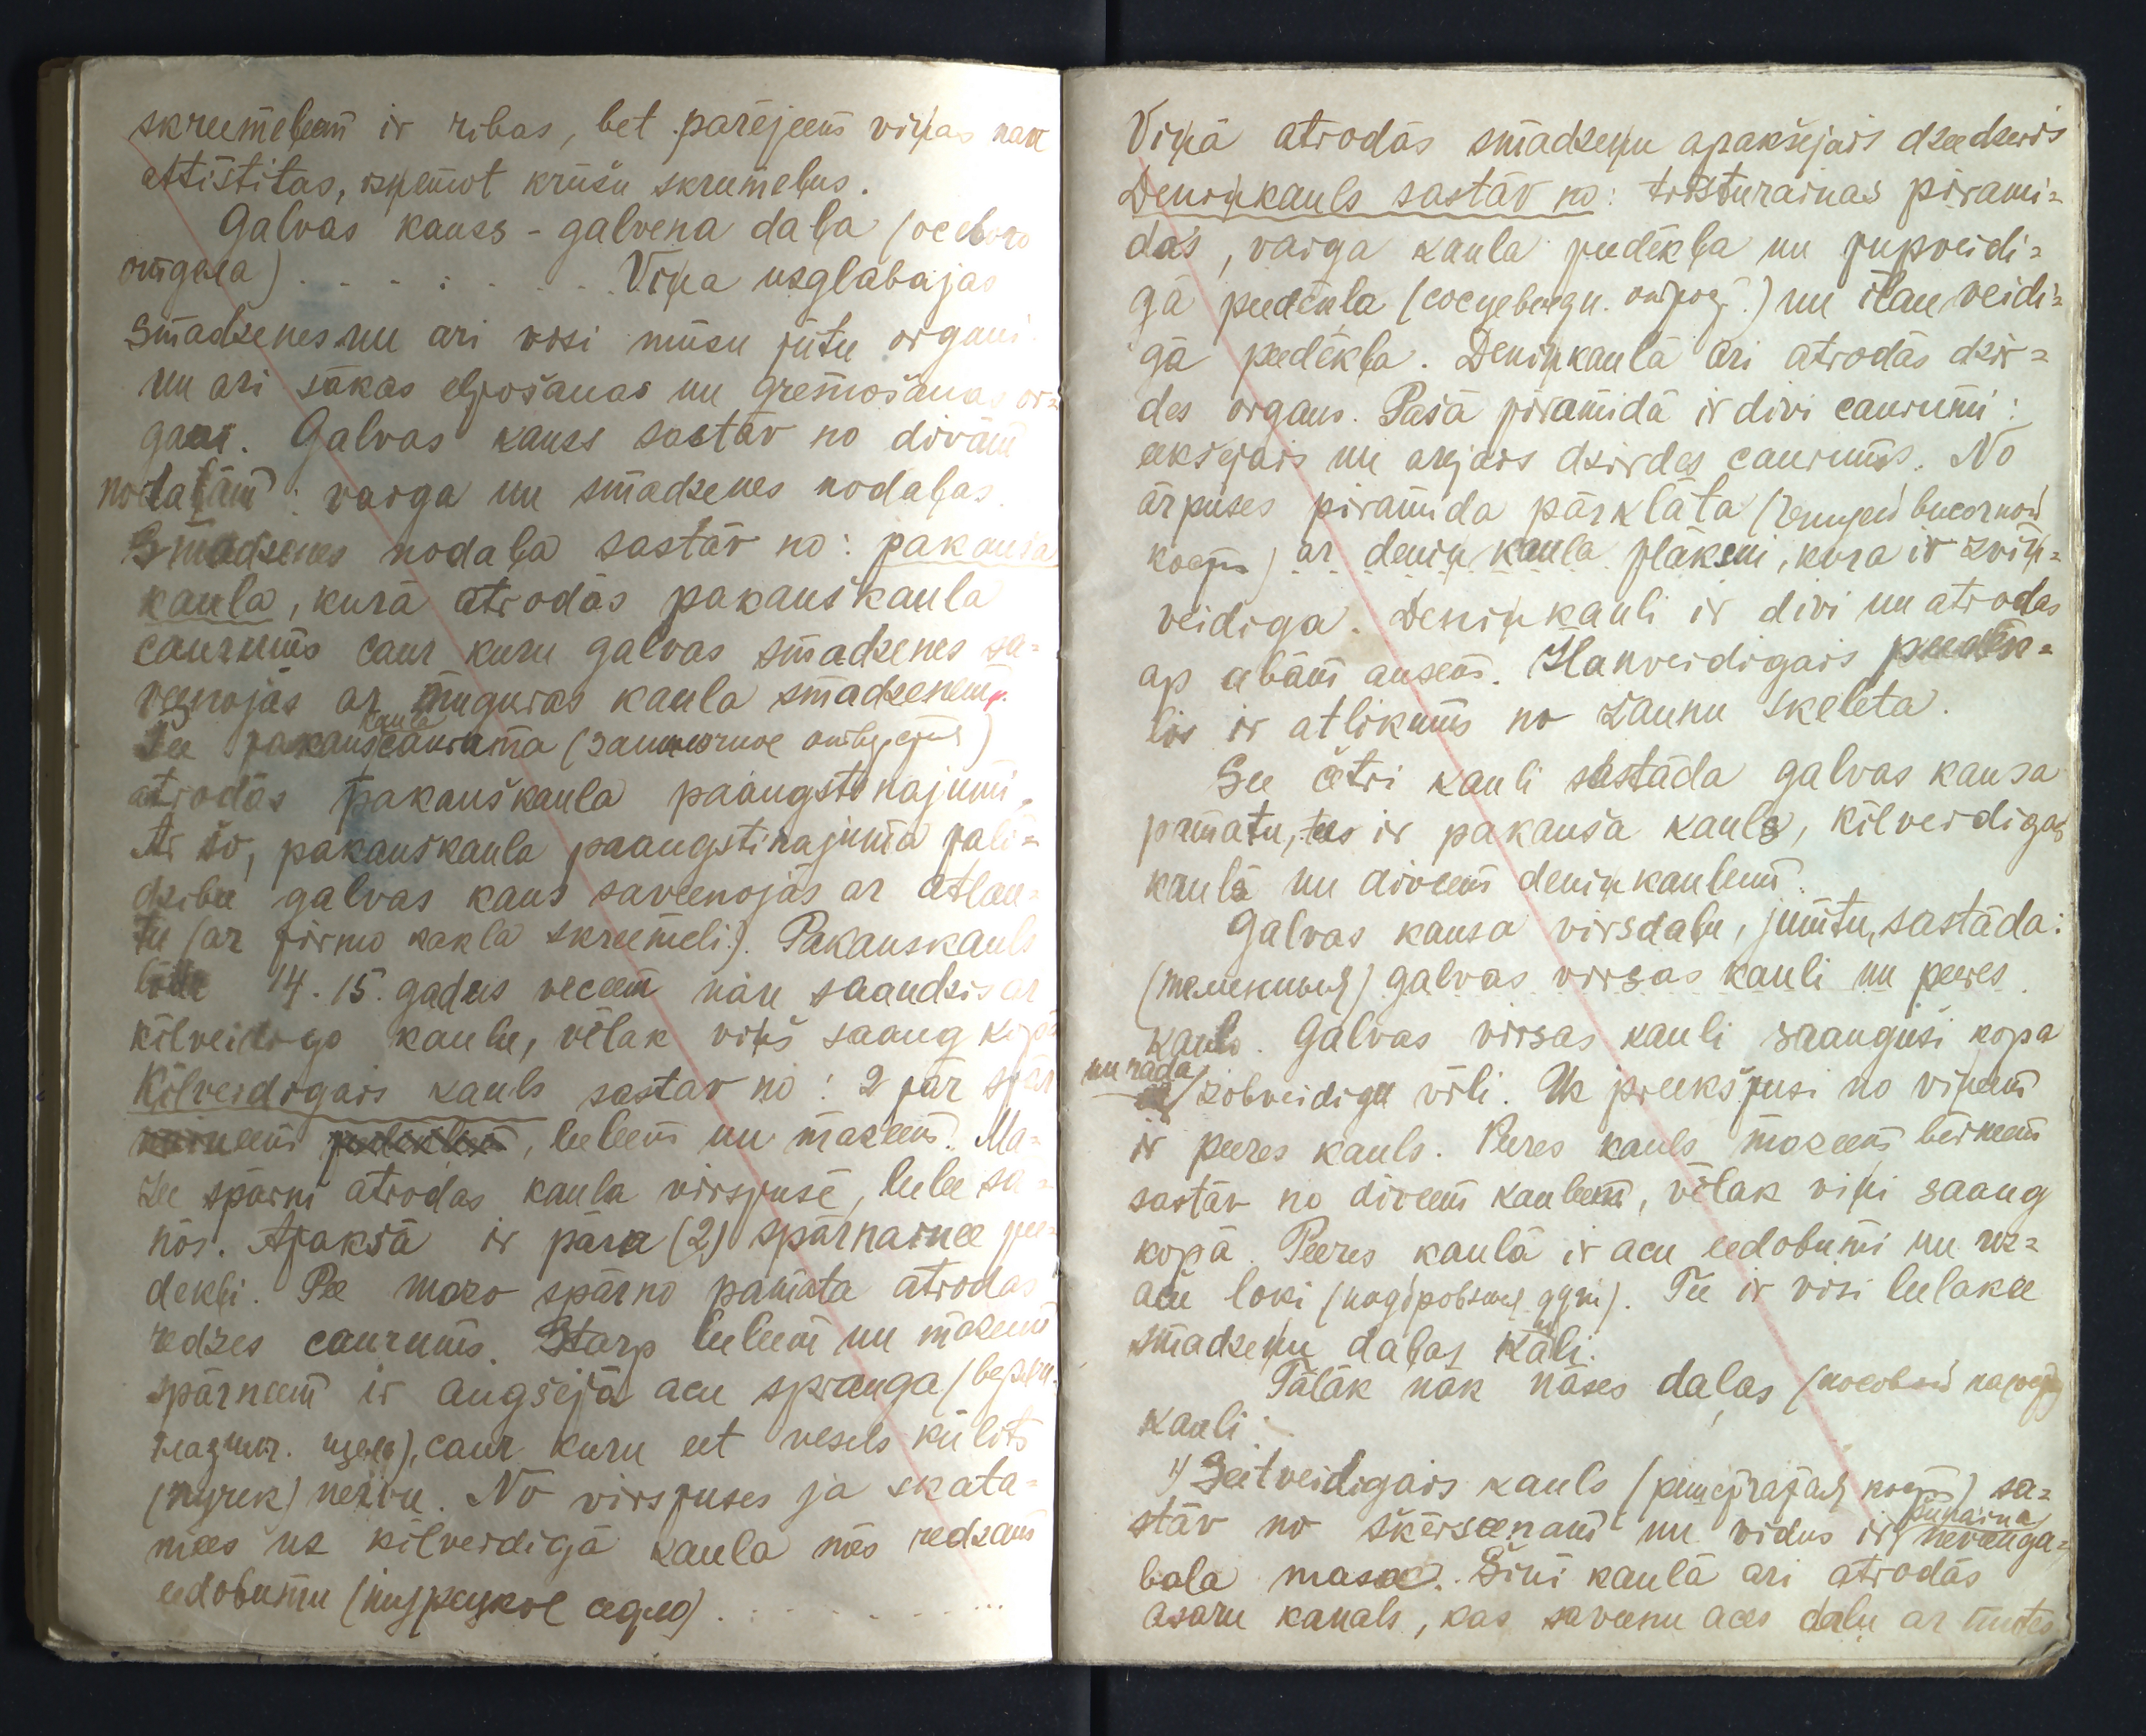 skreemeļeem ir ribas, bet parējeem viņas nau
attīstitas, isņemot krūšu skreemeļus.
Galvas kauss - galvena daļa (особого
отдела) . . . . . . . . Viņa usglabajas
smadzenes un ari visi mūsu jūtu organi
un ari sākas elpošanas un gremošanas or=
gani. Galvas kauss sastāv no divām
nodaļām: vaiga un smadzenes nodaļas.
Smadzenes nodaļa sastāv no: pakauša
kaula, kurā atrodas pakauškaula
caurums caur kuru galvas smadzenes sa=
veenojās ar muguras kaula smadzenem.
Pee pakauš kaula cauruma (затылочное отверстие)
atrodās pakauškaula paaugstinajumi.
Ar šo, pakauškaula paaugstinajuma palī=
dzibu galvas kaus saveenojās ar atlan=
tu (ar pirmo kakla skreemeli). Pakauskauls
līdz 14.15. gadus veceem nāu saaudzis ar
kīlveidigo kaulu, vēlak viņš saaug kopā
Kīlveidigais kauls sastav no: 2 pār spār
naineem, leeleem un mazeem. Ma=
zee spārni atrodas kaula virspusē, leelee sā=
nōs. Apaksā ir pāra (2) spārnainee pee=
dekļi. Pee mazo spārno pamata atrodas
redzes caurums. Starp leeleem un mazeem
spārneem ir augšejā acu sprauga (верхн.
глазнич. щель), caur kuru eet vesels kūlits
(пучек) nervu. No virspuses ja skata=
mees us kīlveidigā kaula mēs redzam
eedobumu (турецкое седло) . . . . . . . .
Viņā atrodās smadzeņu apakšejais dzeedzeris
Deniņkauls sastāv no: trīsstūrainas pirami=
das, vaiga kaula peedēkļa un pupveidi=
gā peedēkļa (сосцевидн. отрог.) un īlen veidi=
gā peedēkļa. Deniņkaulā ari atrodās dzir=
des organs. Pašā piramidā ir divi caurumi:
eeksejais un arejais dzirdes caurums. No
ārpuses piramida pārklāta (чешуей височной
кости) ar deniņ kaula plāksni, kura ir zvīņ=
veidiga. Deniņkauli ir divi un atrodas
ap abām ausem. Īlenveidigais peedēk=
lis ir atlikums no žaunu skeleta.
See četri kauli sastāda galvas kausa
pamatu, tas ir pakauša kauls, kīlveidigais
kauls un diveem deniņkauleem.
Galvas kausa virsdaļu, jumtu, sastāda:
(темекивый) galvas virsas kauli un peeres
kauls. Galvas virsas kauli saaugusi kopa
un rāda zobveidigu vīli. Uz preekšpusi no viņeem
ir peeres kauls. Peeres kauls mazeem berneem
sastāv no diveem kauleem, vēlak viņi saaug
kopā. Peeres kaulā ir acu eedobumi un uz=
acu loki (надбровные дуги). Tee ir visi leelakee
smadzeņu daļas kauli.
Tālāk nāk nāses daļas
kauli.
1) Seetveidigais kauls (решетчатая кость) sa=
stāv no šķērseenam un vidus ir pūkaina neveenga=
bala masa. Šini kaulā ari atrodās
asaru kanals, kas saveenu acs daļu ar mutes